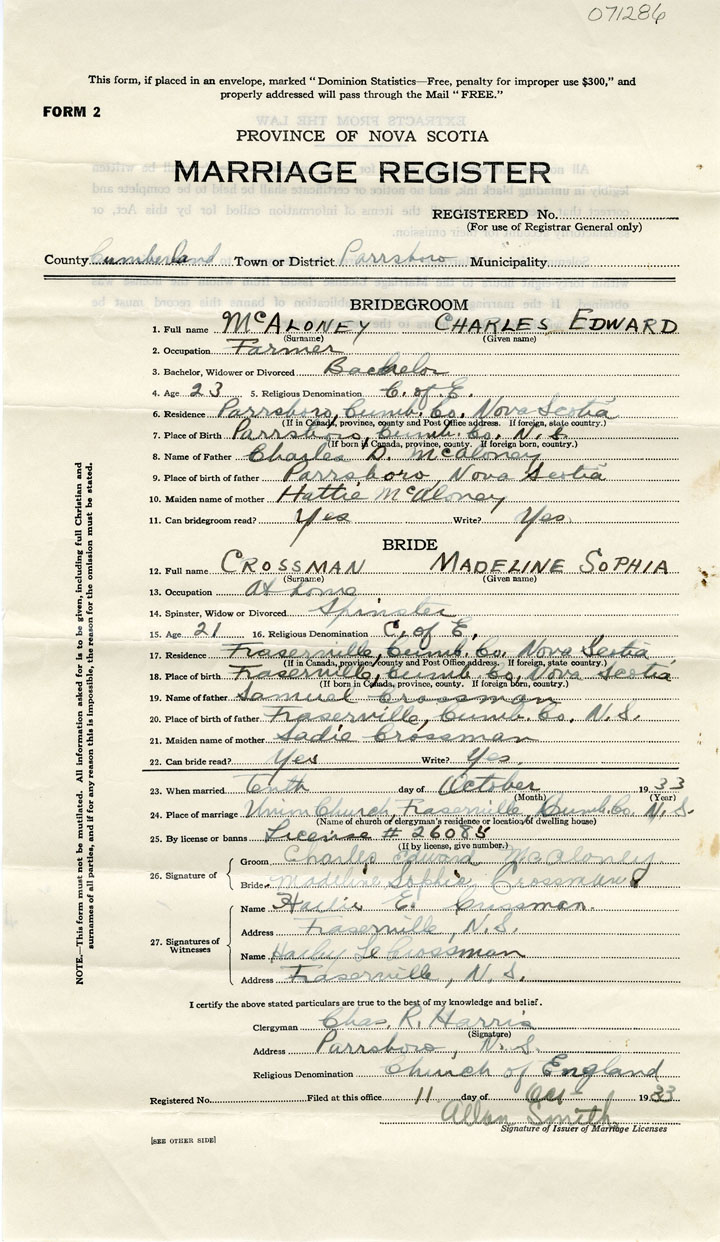 071286
This form, if placed in an envelope, marked "Dominion Statistics—Free, penalty for improper use $300," and
properly addressed will pass through the Mail "FREE."
FORM 2
PROVINCE OF NOVA SCOTIA
MARRIAGE REGISTER
REGISTERED No.
(For use of Registrar General only)
County Cumberland Town or District Parrsboro Municipality
BRIDEGROOM
1. Full name McALONEY CHARLES EDWARD
(Surname) (Given name)
2. Occupation Farmer
3. Bachelor, Widower or Divorced Bachelor
4. Age 23 5. Religious Denomination C. of E.
6. Residence Parrsboro, Cumb. Co. Nova Scotia
(If in Canada, province, county and Post Office address. If foreign, state country.)
7. Place of Birth Parrsboro, Cumb. Co. N. S.
(If born in Canada, province, county. If foreign born, country.)
8. Name of Father Charles D. McAloney
9. Place of birth of father Parrsboro Nova Scotia
10. Maiden name of mother Hattie McAloney
11. Can bridegroom read? Yes Write? Yes.
BRIDE
12. Full name CROSSMAN MADELINE SOPHIA
(Surname) (Given name)
13. Occupation At home
14. Spinster, Widow or Divorced Spinster
15. Age 21 16. Religious Denomination C. of E.
17. Residence Fraserville, Cumb. Co. Nova Scotia
(If in Canada, province, county and Post Office address. If foreign, state country.)
18. Place of birth Fraserville, Cumb. Co., Nova Scotia
(If born in Canada, province, county. If foreign born, country.)
19. Name of father Samuel Crossman
20. Place of birth of father Fraserville, Cumb. Co. N. S.
21. Maiden name of mother Sadie Crossman
22. Can bride read? Yes Write? Yes.
23. When married Tenth day of October 1933
(Month) (Year)
24. Place of marriage Union Church, Fraserville, Cumb. Co. N. S.
(Name of church or clergyman's residence or location of dwelling house)
25. By license or banns License # 26085
(If by license, give number.)
26. Signature of Groom Charles Edward McAloney
Bride Madeline Sophia Crossman
27. Signatures of Witnesses Name E. Crossman.
Address Fraserville, N. S.
Name Crossman
Address Fraserville, N. S.
I certify the above stated particulars are true to the best of my knowledge and belief.
Clergyman Chas. R. Harris
(Signature)
Address Parrsboro, N. S.
Religious Denomination Church of England
Registered No. Filed at this office 11 day of Oct 1933
Allan Smith
Signature of Issuer of Marriage Licenses
[SEE OTHER SIDE]
NOTE.—This form must not be mutilated. All information asked for is to be given, including full Christian and
surnames of all parties, and if for any reason this is impossible, the reason for the omission must be stated.